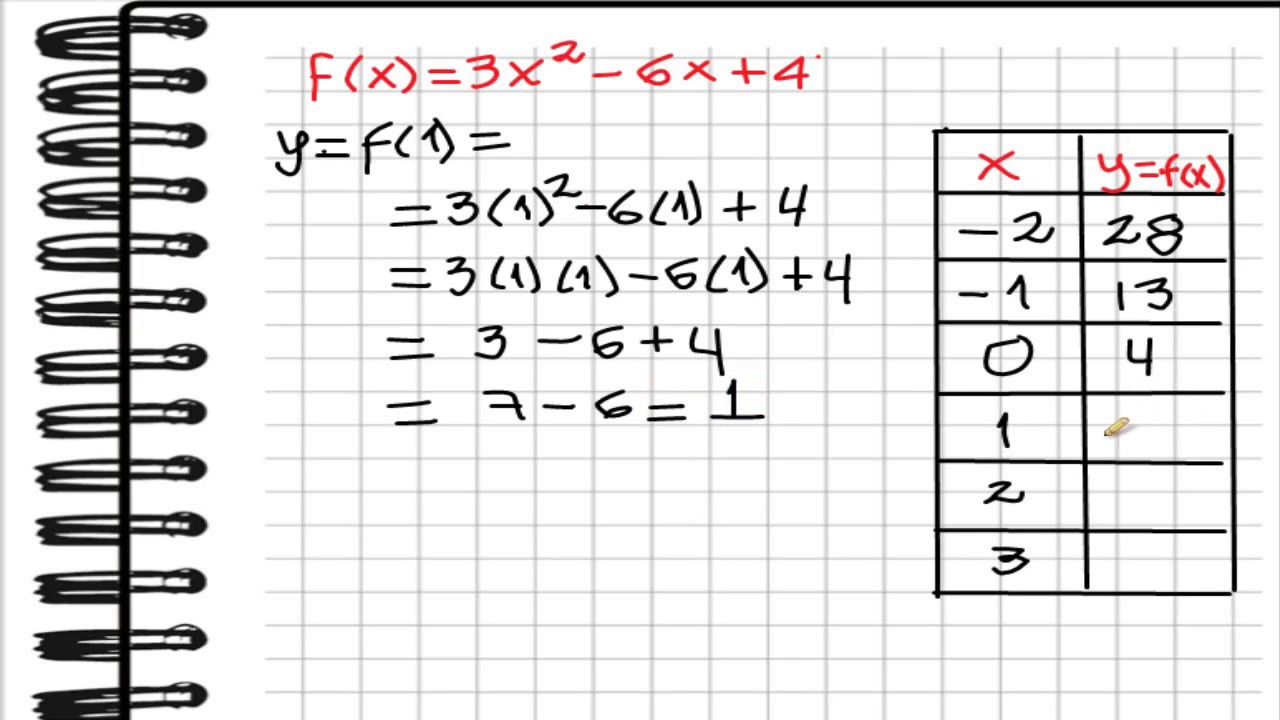 F(x) = 3x² - 6x + 4
y = f(1) =
= 3(1)² - 6(1) + 4
= 3(1)(1) - 6(1) + 4
= 3 - 6 + 4
= 7 - 6 = 1
x y=f(x)
-2 28
-1 13
0 4
1
2
3